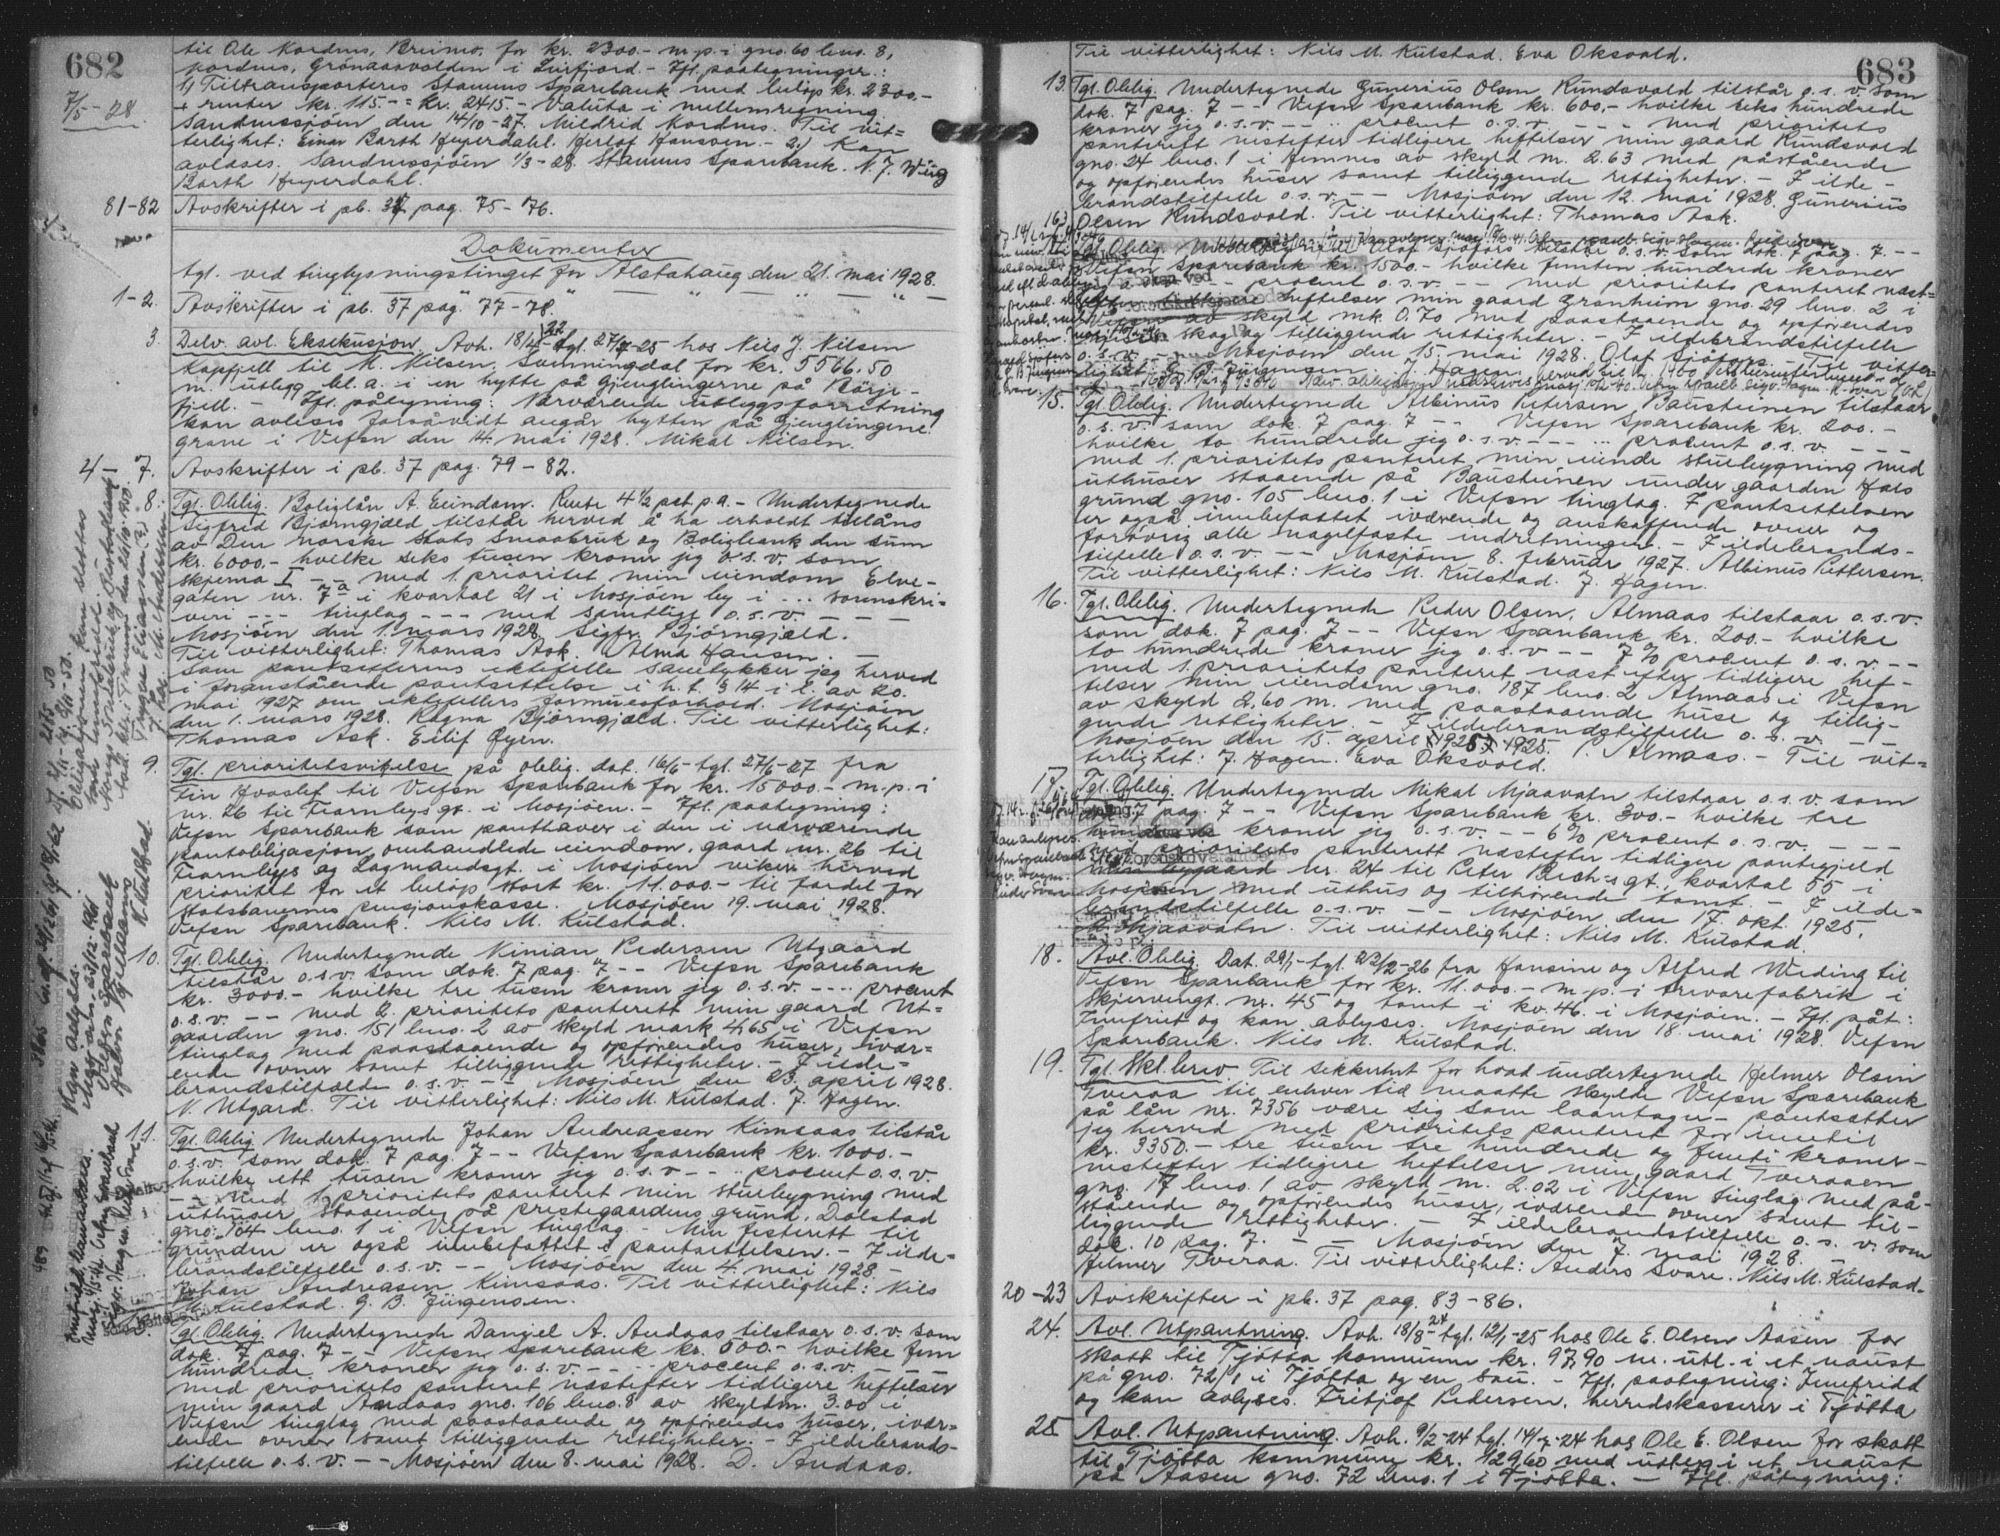 682
7/5-28
til Ole Kordnes, Breimo, for kr. 2300.- m.p. i gno. 60 bno. 8,
nordnes, Grönaasvolden i Leirfjord. - Ifl. paategninger.:
1) Tiltransporteres Stamnes Sparebank med beløp kr. 2300.-
+ renter kr. 115.- = kr. 2415.- Valuta i mellemregning
Sandnessjøen den 14/10-27. Mildrid Kordnes. Til vit=
terlighet: Einar Barth Heyerdahl. Herlof Hanssen. - 2) Kan
avlæses. Sandnessjöen 1/3-28. Stamnes Sparebank. N. J. Wiig
Barth Heyerdahl.
81-82 Avskrifter i pb. 37 pag. 75-76.
Dokumenter
tgl. ved tinglysningstinget for Alstahaug den 21. mai 1928.
1-2. Avskrifter i pb. 37 pag. 77-78.
3. Delv. avl. Eksekusjon. Avh. 18/4-22 tgl. 27/4-25 hos Nils J. Nilsen
Kapfjell til M. Nilsen, Svenningdal for kr. 5566.50
m. utlegg bl. a. i en hytte på Gjenglingerne på Börje-
fjell. - Ifl. påtegning: Nærværende utleggsforretning
kan avleses forsåvidt angår hytten på Gjenglingene.
Grane i Vefsn den 14. mai 1928. Mikal Nilsen.
4-7. Avskrifter i pb. 37 pag. 79-82.
8. Tgl. Oblig. Boliglån A. Eiendom. Rente 4 1/2 pct. p.a. - Undertegnede
Sigfred Bjørngjeld tilstår herved å ha erholdt tillåns
av Den norske Stats Småbruk og Boligbank den sum
kr. 6000.- hvilke seks tusen kroner jeg o.s.v. som
skjema I - - med 1. prioritet min eiendom Elve-
gaten nr. 7a i kvartal 21 i Mosjöen by i ... sorenskri-
veri - - - tinglag - - - med samtlige o.s.v. - - -
Mosjöen den 1. mars 1928. Sigfr. Björngjeld.
Til vitterlighet: Thomas Ask. Alma Hansen. -
Som pantsetterens ektefelle samtykker jeg herved
i foranstående pantsettelse i h.t. § 14 i l. av 20.
mai 1927 om ektefellers formuesforhold. Mosjöen
den 1. mars 1928. Ragna Björngjeld. Til vitterlighet:
Thomas Ask. Eilif Øyen.
9. Tgl. prioritetsvikelse på oblig. dat. 16/6-tgl. 27/6-27 fra
Fin Kvaslef til Vefsn Sparebank for kr. 15000.- m.p. i
nr. 26 til Fearnleys gt. i Mosjøen. - Ifl. paategning:
Vefsn Sparebank som panthaver i den i nærværende
pantobligasjon omhandlede eiendom, gaard nr. 26 til
Fearnleys og Lagmandsgt. i Mosjöen viker herved
prioritet for et belöp stort kr. 11.000.- til fordel for
Statsbanernes pensjonskasse. Mosjöen 19. mai 1928.
Vefsn Sparebank. Nils M. Kulstad.
10. Tgl. Oblig. Undertegnede Kinian Pedersen Utgaard
tilstår o.s.v. som dok. 7 pag. 7 - - Vefsn Sparebank
kr. 3000.- hvilke tre tusen kroner jeg o.s.v. - - .. procent
o.s.v. - - med 2. prioritets panterett min gaard Ut=
gaarden gno. 151 bno. 2 av skyld mark 4,65 i Vefsn
tinglag med paastaaende og opförendes huser, ivær=
ende ovner samt tilliggende rettigheter. - I ilde=
brandstilfelde o.s.v. - - Mosjöen den 23. april 1928.
N. Utgard. Til vitterlighet: Nils M. Kulstad. J. Hagen.
11. Tgl. Oblig. Undertegnede Johan Andreassen Kimsaas tilstår
o.s.v. som dok. 7 pag. 7 - - Vefsn Sparebank kr. 1000.-
hvilke ett tusen kroner jeg o.s.v. - - .. procent o.s.v.
- - med 1. prioritets panteret min stuebygning med
uthuser staaende på prestegaardens grund, Dolstad
gno. 104 bno. 1 i Vefsn tinglag. - Min festerett til
grunden er også innbefattet i pantsettelsen. - I ilde=
brandstilfelle o.s.v. - - Mosjöen den 4. mai 1928 -
Johan Andreasen Kimsaas. Til vitterlighet: Nils
M. Kulstad. G. B. Jürgensen.
Tgl. Oblig. Undertegnede Daniel A. Andaas tilstaar o.s.v. som
dok. 7 pag. 7 - - Vefsn Sparebank kr. 500.- hvilke fem
hundrede kroner jeg o.s.v. - - .. procent o.s.v. - -
med prioritets panteret næstefter tidligere heftelser
min gaard Andaas gno. 106 bno. 8 av skyldm. 3.00 i
Vefsn tinglag med paastaaende og opförendes huser, ivær=
ende ovner samt tilliggende rettigheter. - I ildebrands-
tilfelle o.s.v. - - Mosjöen den 8. mai 1928. D. Andaas.
683
Til vitterlighet: Nils M. Kulstad. Eva Oksvold.
13. Tgl. Oblig. Undertegnede Gunerius Olsen Kundsvold tilstår o.s.v. som
dok. 7 pag. 7 - - Vefsn Sparebank kr. 600,- hvilke seks hundrede
kroner jeg o.s.v. - - .. procent o.s.v. - - - med prioritets
panterett nestefter tidligere heftelser min gaard Kundsvold
gno. 24 bno. 1 i Hemnes av skyld m. 2.63 med påstående
og opførendes huser samt tilliggende rettigheter. - I ilde-
brandstilfelle o.s.v. - - Mosjøen den 12. mai 1928. Gunerius
Olsen Kundsvold. Til vitterlighet: Thomas Ask.
Tgl. Oblig. Undertegnede Olaf Sjøfors tilstår o.s.v. som dok. 7 pag. 7. - -
Vefsn Sparebank kr. 1500.- hvilke femten hundrede kroner
jeg o.s.v. - - procent o.s.v. - - med prioritets panteret næst=
efter tidligere heftelser min gaard Granheim gno. 29 bno. 2 i
Vefsn av skyld mk. 0.70 med paastaaende og opförendes
huser skog og tilliggende rettigheter. - I ildebrandstilfelle
o.s.v. - - Mosjöen den 15. mai 1928. Olaf Sjöfors. - Til vitter=
lighet: G. B. Jürgensen. J. Hagen.
15. Tgl. Oblig. Undertegnede Albinus Petersen, Bausteinen tilstaar
o.s.v. som dok. 7 pag. 7 - - Vefsn Sparebank kr. 200.-
hvilke to hundrede jeg o.s.v. - - - .. procent o.s.v. - - -
med 1. prioritets panteret min eiende stuebygning med
uthuser staaende på Bausteinen under gaarden Hals
grund gno. 105 bno. 1 i Vefsn tinglag. I pantsettelsen
er også innbefattet iværende og anskaffende ovner og
forövrig alle nagelfaste indretninger. - I ildebrands-
tilfelle o.s.v. - - Mosjöen 8. februar 1927. Albinus Pettersen.
Til vitterlighet: Nils M. Kulstad. J. Hagen.
16. Tgl. Oblig. Undertegnede Peder Olsen, Almaas tilstaar o.s.v.
som dok. 7 pag. 7 - - Vefsn Sparebank kr. 200.- hvilke
to hundrede kroner jeg o.s.v. - - 7% procent o.s.v. - -
med 1. prioritets panteret næst efter tidligere hef-
telser min eiendom gno. 187 bno. 2 Almaas i Vefsn
av skyld 2,60 m. med paastaaende huse og tillig-
gende rettigheter. - I ildebrandstilfelle o.s.v. -
Mosjöen den 15. april 1925. P. Almaas. - Til vit=
terlighet: J. Hagen. Eva Oksvold.
17. Tgl. Oblig. Undertegnede Mikal Mjaavatn tilstaar o.s.v. som
dok. 7 pag. 7 - - Vefsn Sparebank kr. 300.- hvilke tre
hundrede kroner jeg o.s.v. - - 6% procent o.s.v. - - -
med prioritets panterett næstefter tidligere pantegjeld
min bygaard nr. 24 til Peter Bech's gt., kvartal 55 i
Mosjöen med uthus og tilhörende tomt. - I ilde=
brandstilfelle o.s.v. - - Mosjöen den 17. okt. 1925.
M. Mjaavatn. Til vitterlighet: Nils M. Kulstad.
18. Avl. Oblig. Dat. 29/1-tgl. 23/2-26 fra Hansine og Alfred Weding til
Vefsn Sparebank for kr. 11.000.- m.p. i trevarefabrik i
Skjervengt. nr. 45 og tomt i kv. 46. i Mosjöen. - Ifl. påt:
Innfriet og kan avlyses. Mosjöen den 18. mai 1928. Vefsn
Sparebank. Nils M. Kulstad.
19. Tgl. Skl.brev. Til sikkerhet for hvad undertegnede Helmer Olsen
Tveraa til enhver tid maatte skylde Vefsn Sparebank
på lån nr. 7356 være sig som laantager - pantsætter
jeg herved med prioritets panteret for inntil
kr. 3350.- tre tusen tre hundrede og femti kroner -
nestefter tidligere heftelser min gaard Tveraaen
gno. 17 bno. 1 av skyld m. 2.02 i Vefsn tinglag med på-
stående og opförendes huser, iværende ovner samt til-
liggende rettigheter. - I ildebrandstilfelle o.s.v. som
dok. 10 pag. 7. - - Mosjöen den 7. mai 1928. -
Helmer Tveraa. Til vitterlighet: Anders Svare. Nils M. Kulstad.
20-23 Avskrifter i pb. 37 pag. 83-86.
24. Avl. Utpantning. Avh. 18/8-24 tgl. 12/1-25 hos Ole E. Olsen Aasen for
skatt til Tjötta kommune kr. 97,90 m. utl. i et naust
på gno. 72/1 i Tjötta og en sau. - Ifl. paategning: Innfridd
og kan avlyses. Fritjof Pedersen, herredskasserer i Tjötta
25. Avl. Utpantning. Avh. 9/2-24 tgl. 14/7-24 hos Ole E. Olsen for skatt
til Tjötta kommune kr. 129,60 med utlegg i et naust
på Aasen gno. 72 bno. 1 i Tjötta. - Ifl. påtegning: